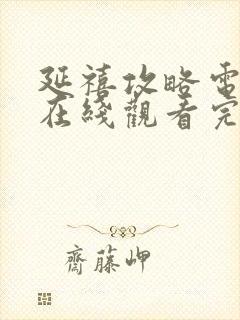 延禧攻略電
在綫觀看完
齋藤岬